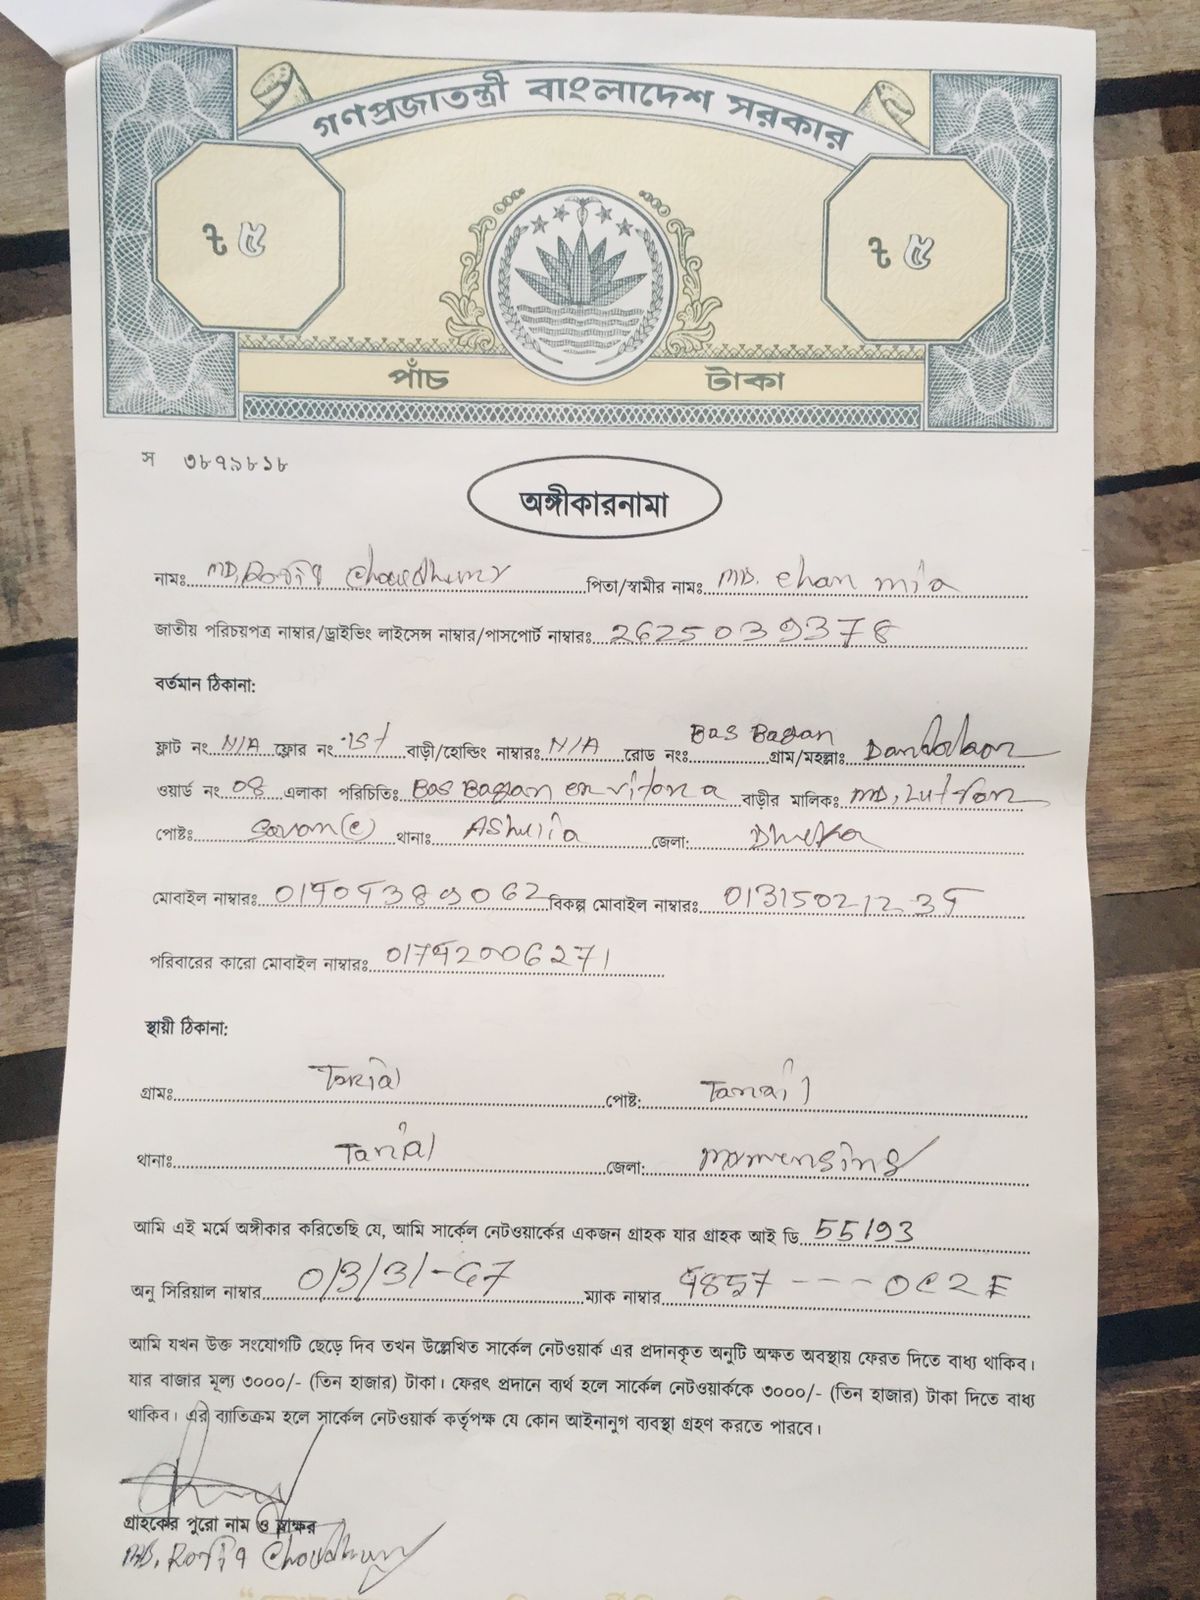 গণপ্রজাতন্ত্রী বাংলাদেশ সরকার
৳ ৫ ৳ ৫
পাঁচ টাকা
স ৩৮৭৯৮১৮
অঙ্গীকারনামা
নামঃ MD, Rofiq Chowdhury পিতা/স্বামীর নামঃ MD. chan mia
জাতীয় পরিচয়পত্র নাম্বার/ড্রাইভিং লাইসেন্স নাম্বার/পাসপোর্ট নাম্বারঃ 2625039378
বর্তমান ঠিকানা:
ফ্লাট নং N/A ফ্লোর নং 1st বাড়ী/হোল্ডিং নাম্বারঃ N/A রোড নংঃ Bas Bagan গ্রাম/মহল্লাঃ
ওয়ার্ড নং 08 এলাকা পরিচিতিঃ Bas Bagan বাড়ীর মালিকঃ MD,
পোষ্টঃ থানাঃ AShulia জেলা: Dhaka
মোবাইল নাম্বারঃ বিকল্প মোবাইল নাম্বারঃ
পরিবারের কারো মোবাইল নাম্বারঃ
স্থায়ী ঠিকানা:
গ্রামঃ Tarial পোষ্ট: Tarail
থানাঃ Tarial জেলা: Momensing
আমি এই মর্মে অঙ্গীকার করিতেছি যে, আমি সার্কেল নেটওয়ার্কের একজন গ্রাহক যার গ্রাহক আই ডি 55193
অনু সিরিয়াল নাম্বার ম্যাক নাম্বার
আমি যখন উক্ত সংযোগটি ছেড়ে দিব তখন উল্লেখিত সার্কেল নেটওয়ার্ক এর প্রদানকৃত অনুটি অক্ষত অবস্থায় ফেরত দিতে বাধ্য থাকিব।
যার বাজার মূল্য ৩০০০/- (তিন হাজার) টাকা। ফেরৎ প্রদানে ব্যর্থ হলে সার্কেল নেটওয়ার্ককে ৩০০০/- (তিন হাজার) টাকা দিতে বাধ্য
থাকিব। এর ব্যাতিক্রম হলে সার্কেল নেটওয়ার্ক কর্তৃপক্ষ যে কোন আইনানুগ ব্যবস্থা গ্রহণ করতে পারবে।
গ্রাহকের পুরো নাম ও স্বাক্ষর
MD. Rofiq Chowdhury